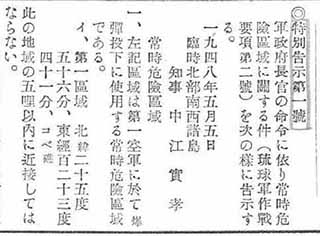 ◎特別告示第一號
軍政府長官の命令に依り常時危
險區域に關する件（琉球軍作戰
要項第二號）を次の樣に告示す
る。
一九四八年五月五日
臨時北部南西諸島
知事　中江實孝
常時危險區域
一、左記區域は第一空軍に於て爆
彈投下に使用する常時危險區域
である。
イ、第一區域　北緯二十五度
五十六分、東經百二十三度
四十一分、コベ礁
此の地域の五哩以内に近接しては
ならない。